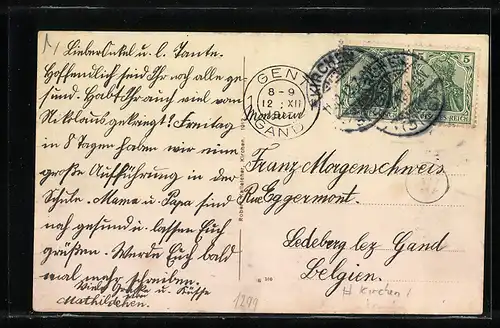 Lieber Onkel u. l. Tante.
Hoffentlich sind Ihr noch alle ge-
sund. Habt Ihr auch viel vom
Niklaus gekriegt? Freitag
in 8 Tagen haben wir eine
große Aufführung in der
Schule. Mama u. Papa sind
noch gesund u. lassen Euch
grüßen. Werde Euch bald
mal mehr schreiben.
Viele Grüße u. Küsse
Mathildchen.
GENT
8-9
12 XII
GAND
KIRCHEN
5
REICH
Monsieur
Franz Morgenschweis
Rue Eggermont.
Ledeberg lez Gand
Belgien.
H Kirchen
1299